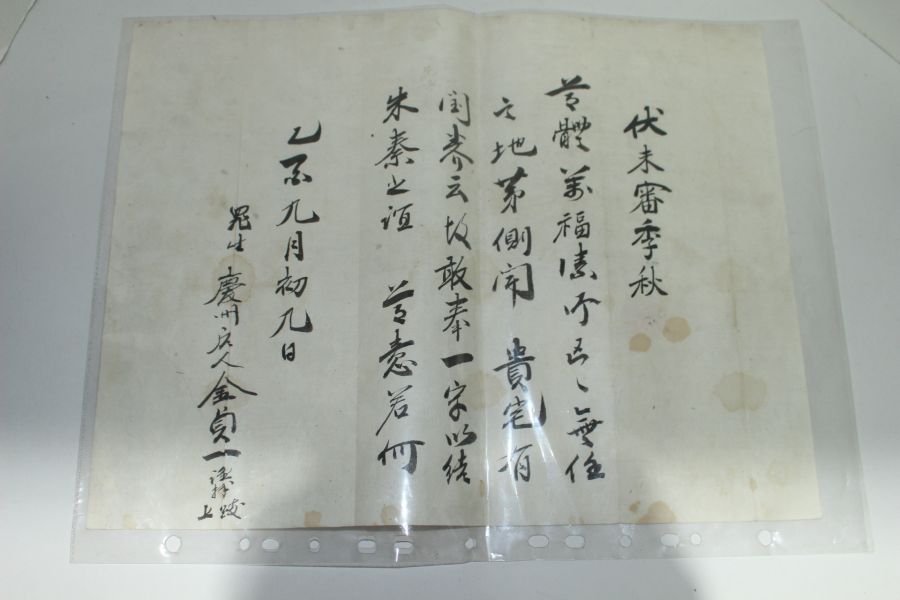 伏未審季秋
尊體萬福溸仰區々無任
之地第側聞 貴宅有
閨養云故敢奉一字以結
朱秦之誼 尊意若何
乙酉九月初九日
慶州后人金貞一謹拜
上